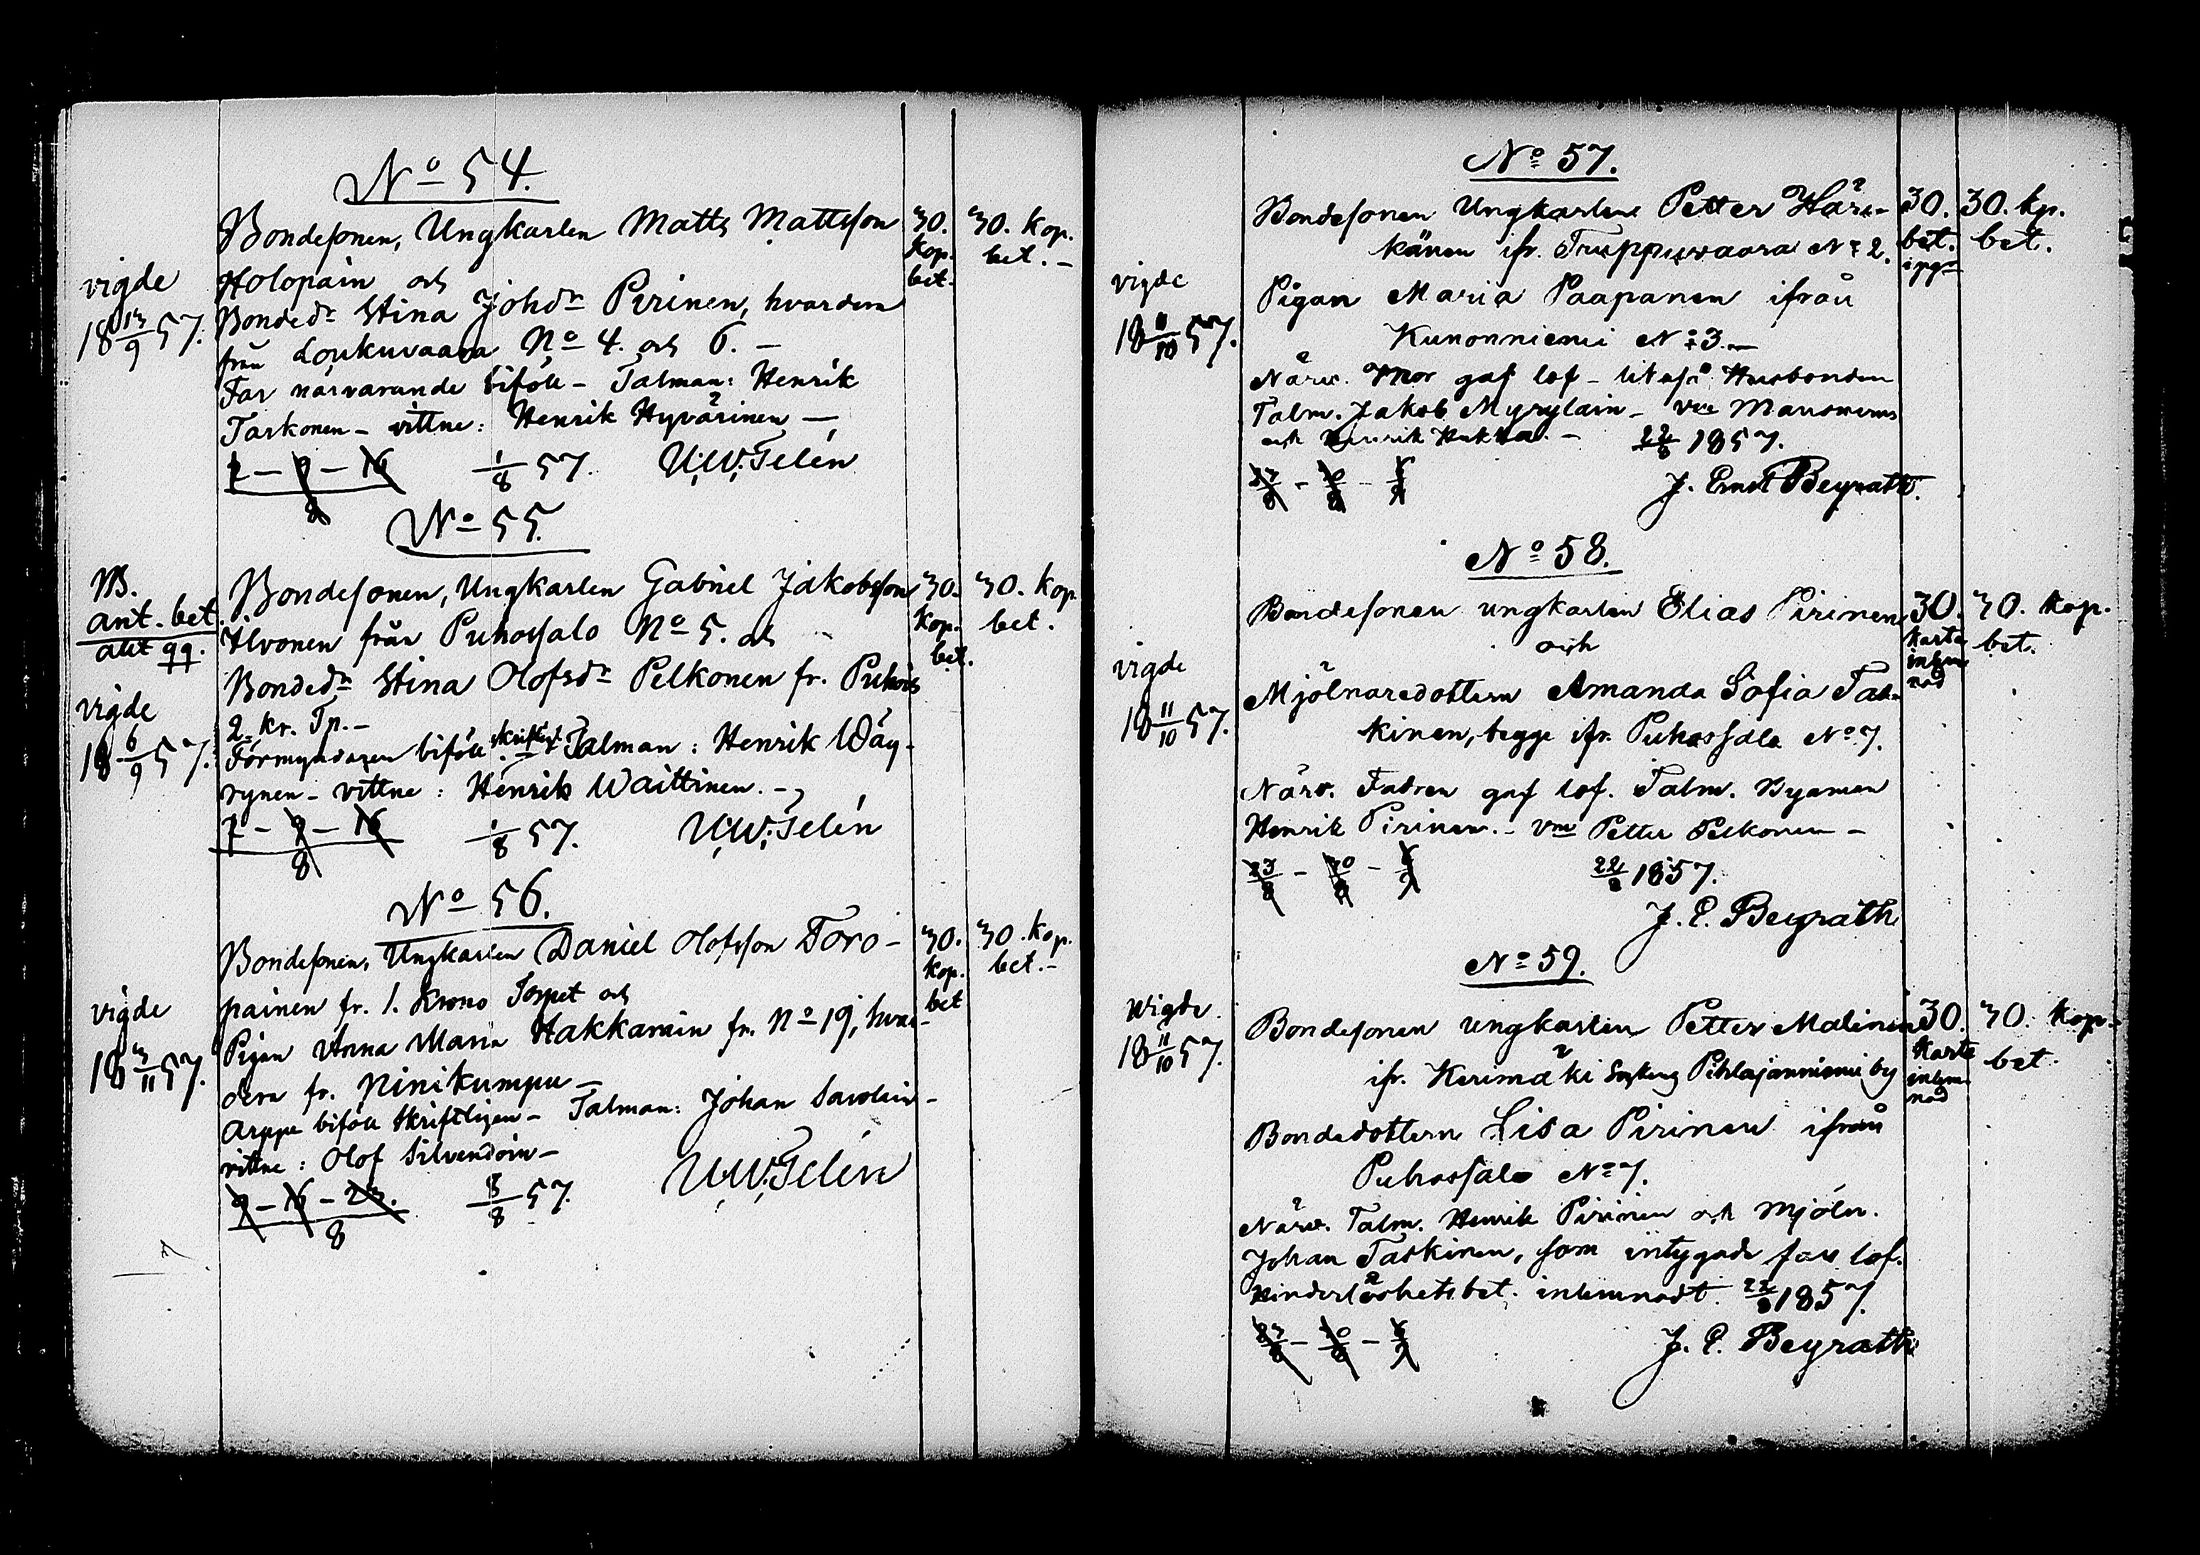 No 54.
Bondesonen, Ungkarlen Matts Mattsson
Holopain och
Bondedr Stina Johdr Pirinen, hvardera
från Loukuvaara No 4. och 6. –
Far närvarande biföll – Talman: Henrik
Tarkonen – vittne: Henrik Hyvärinen –
2 – 9 – 16
8
1/8 57. U.W. Telén
vigde
18 13/9 57.
30.
kop.
bet.
30. kop.
bet. –
No 55.
Bondesonen, Ungkarlen Gabriel Jakobsson
Ilvonen från Puhossalo No 5. och
Bondedr Stina Olofsdr Pelkonen fr. Puhois
2. kr. Tp. –
Förmyndaren biföll skriftl. – Talman: Henrik Wäy-
rynen – vittne: Henrik Waittinen. –
2 – 9 – 16
8
1/8 57. U.W. Telén
NB.
ant. bet.
vigde
18 6/9 57.
30.
kop.
bet.
30. kop
bet.
No 56.
Bondesonen, Ungkarlen Daniel Olofsson Toro-
painen fr. 1. Krono Torpet och
Pigan Anna Maria Hakkarain fr. No 19, hvar-
dera fr. Ninikumpu –
Arppe biföll skriftligen – Talman: Johan Savolain –
vittne: Olof Silvendoin –
9 – 16 – 23.
8
8/8 57. U.W. Telén
vigde
18 3/11 57.
30.
kop.
bet
30. kop.
bet. –
No 57.
Bondesonen Ungkarlen Petter Härs-
känen ifr. Truppuvaara No 2.
Pigan Maria Paapanen ifrån
Kunonniemi No 3. –
Närv. Mor gaf lof – likaså Husbonden
Talm. Jakob Myrylain –
och Henrik Hukka. – 22/8 1857.
23/8 – 30/8 – 6/9
J. Ernst Beyrath.
vigde
18 11/10 57.
30.
bet.
30. kp.
bet.
No 58.
Bondesonen ungkarlen Elias Pirinen
och
Mjölnaredottern Amanda Sofia Tas-
kinen, begge ifr. Puhossalo No 7.
Närv. Fadren gaf lof. Talm. Byaman
Henrik Pirinen. – vne Petter Pelkonen –
23/8 – 30/8 – 6/9
22/8 1857.
J. E. Beyrath
vigde
18 11/10 57.
30.
karta
inlem
nad
30. kop.
bet.
No 59.
Bondesonen ungkarlen Petter Malinen
ifr. Kerimäki Socken Pihlajanniemi by
Bondedottern Lisa Pirinen ifrån
Puhossalo No 7.
Närv. Talm. Henrik Pirinen och Mjöln.
Johan Taskinen, som intygade fars lof.
Hinderlöshetsbet. inlemnadt. 22/8 1857.
23/8 – 30/8 – 6/9
J. E. Beyrath
Wigde.
18 11/10 57.
30.
karta
inlem
nad
30. kop.
bet.